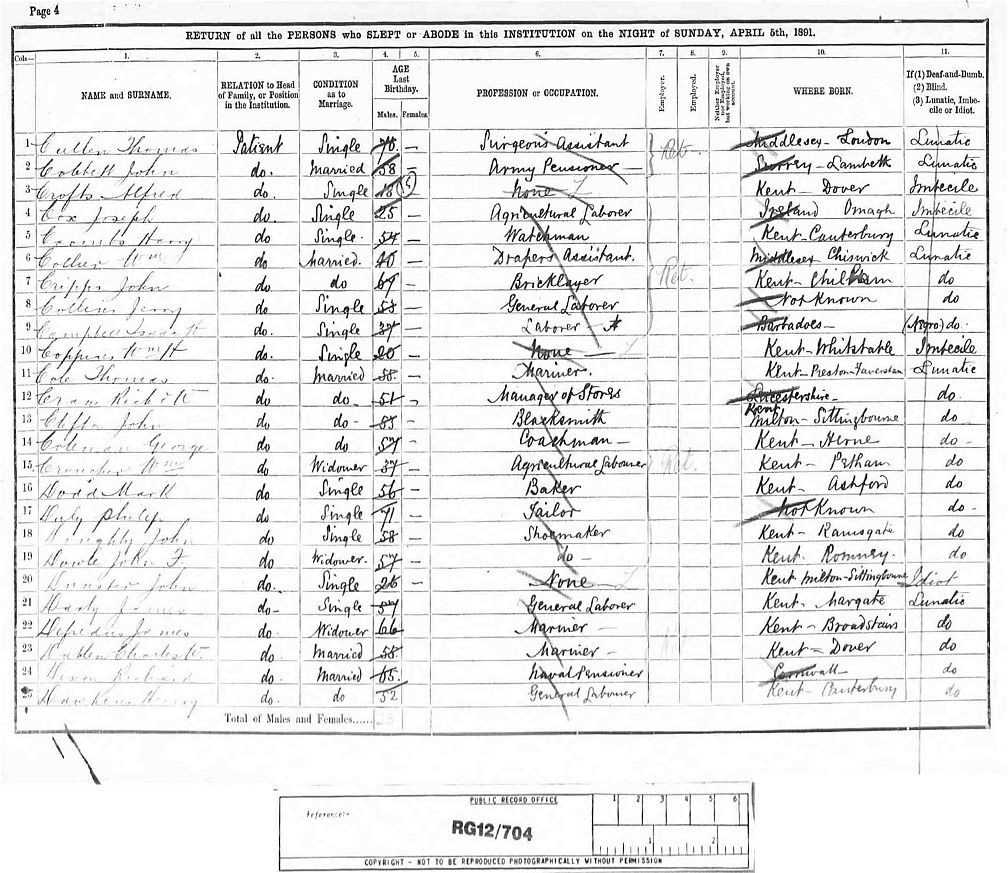 Page 4
RETURN of all the PERSONS who SLEPT or ABODE in this INSTITUTION on the NIGHT of SUNDAY, APRIL 5th, 1891.
Cols— 1. 2. 3. 4. 5. 6. 7. 8. 9. 10. 11.
NAME and SURNAME. RELATION to Head of Family, or Position in the Institution. CONDITION as to Marriage. AGE Last Birthday. Males. Females. PROFESSION or OCCUPATION. Employer. Employed. Neither Employer nor Employed, but working on own account. WHERE BORN. If (1) Deaf-and-Dumb. (2) Blind. (3) Lunatic, Imbecile or Idiot.
1 Cullen Thomas Patient Single 70 — Surgeon's Assistant Ret. Middlesex - London Lunatic
2 Cobbett John do. Married 58 — Army Pensioner — Surrey - Lambeth Lunatic
3 Crofts Alfred do. Single 15 — None Kent - Dover Imbecile
4 Cox Joseph do Single 25 — Agricultural Laborer Ireland Omagh Imbecile
5 Coombs Harry do Single. 54 — Watchman Kent - Canterbury Lunatic
6 Collier Wm do Married. 40 — Drapers Assistant. Middlesex Chiswick Lunatic
7 Cripps John do do 67 — Bricklayer Ret. Kent - Chilham do
8 Collins Jerry do Single 53 — General Laborer — Not Known do
9 Campbell do. Single 37 — Laborer Barbadoes - (Negro) do.
10 Coppins Wm H do. Single 20 — None — Kent - Whitstable Imbecile
11 Cole Thomas do. Married 58. — Mariner. Kent - Preston - Faversham Lunatic
12 Cram do do. 51 — Manager of Stores Leicestershire - do.
13 Clifton John do do - 55 — Blacksmith Kent Milton - Sittingbourne do
14 Coleman George do do 57 — Coachman — Kent - Herne do -
15 Croucher Wm do. Widower 37 — Agricultural Labourer Ret. Kent - Petham do
16 Dodd Mark do Single 56 — Baker Kent - Ashford do
17 Duly Philip do Single 71 — Tailor Not Known do -
18 John do Single 58 — Shoemaker Kent - Ramsgate do
19 Dowle John F. do Widower. 57 — do — Kent - Romney - do
20 Dunster John do. Single 26 — None — Kent Milton - Sittingbourne Idiot
21 James do - Single 57 General Laborer Kent - Margate Lunatic
22 James do. Widower 66 Mariner - Kent - Broadstairs do
23 Charles do. Married 58 Mariner - Kent - Dover do
24 Richard do. Married 65. Naval Pensioner Cornwall - do
25 Hawkins Henry do. do 52 General Labourer Kent - Canterbury do
Total of Males and Females......
PUBLIC RECORD OFFICE
Reference:-
RG12/704
1 2 3 4 5 6
1 2
COPYRIGHT - NOT TO BE REPRODUCED PHOTOGRAPHICALLY WITHOUT PERMISSION